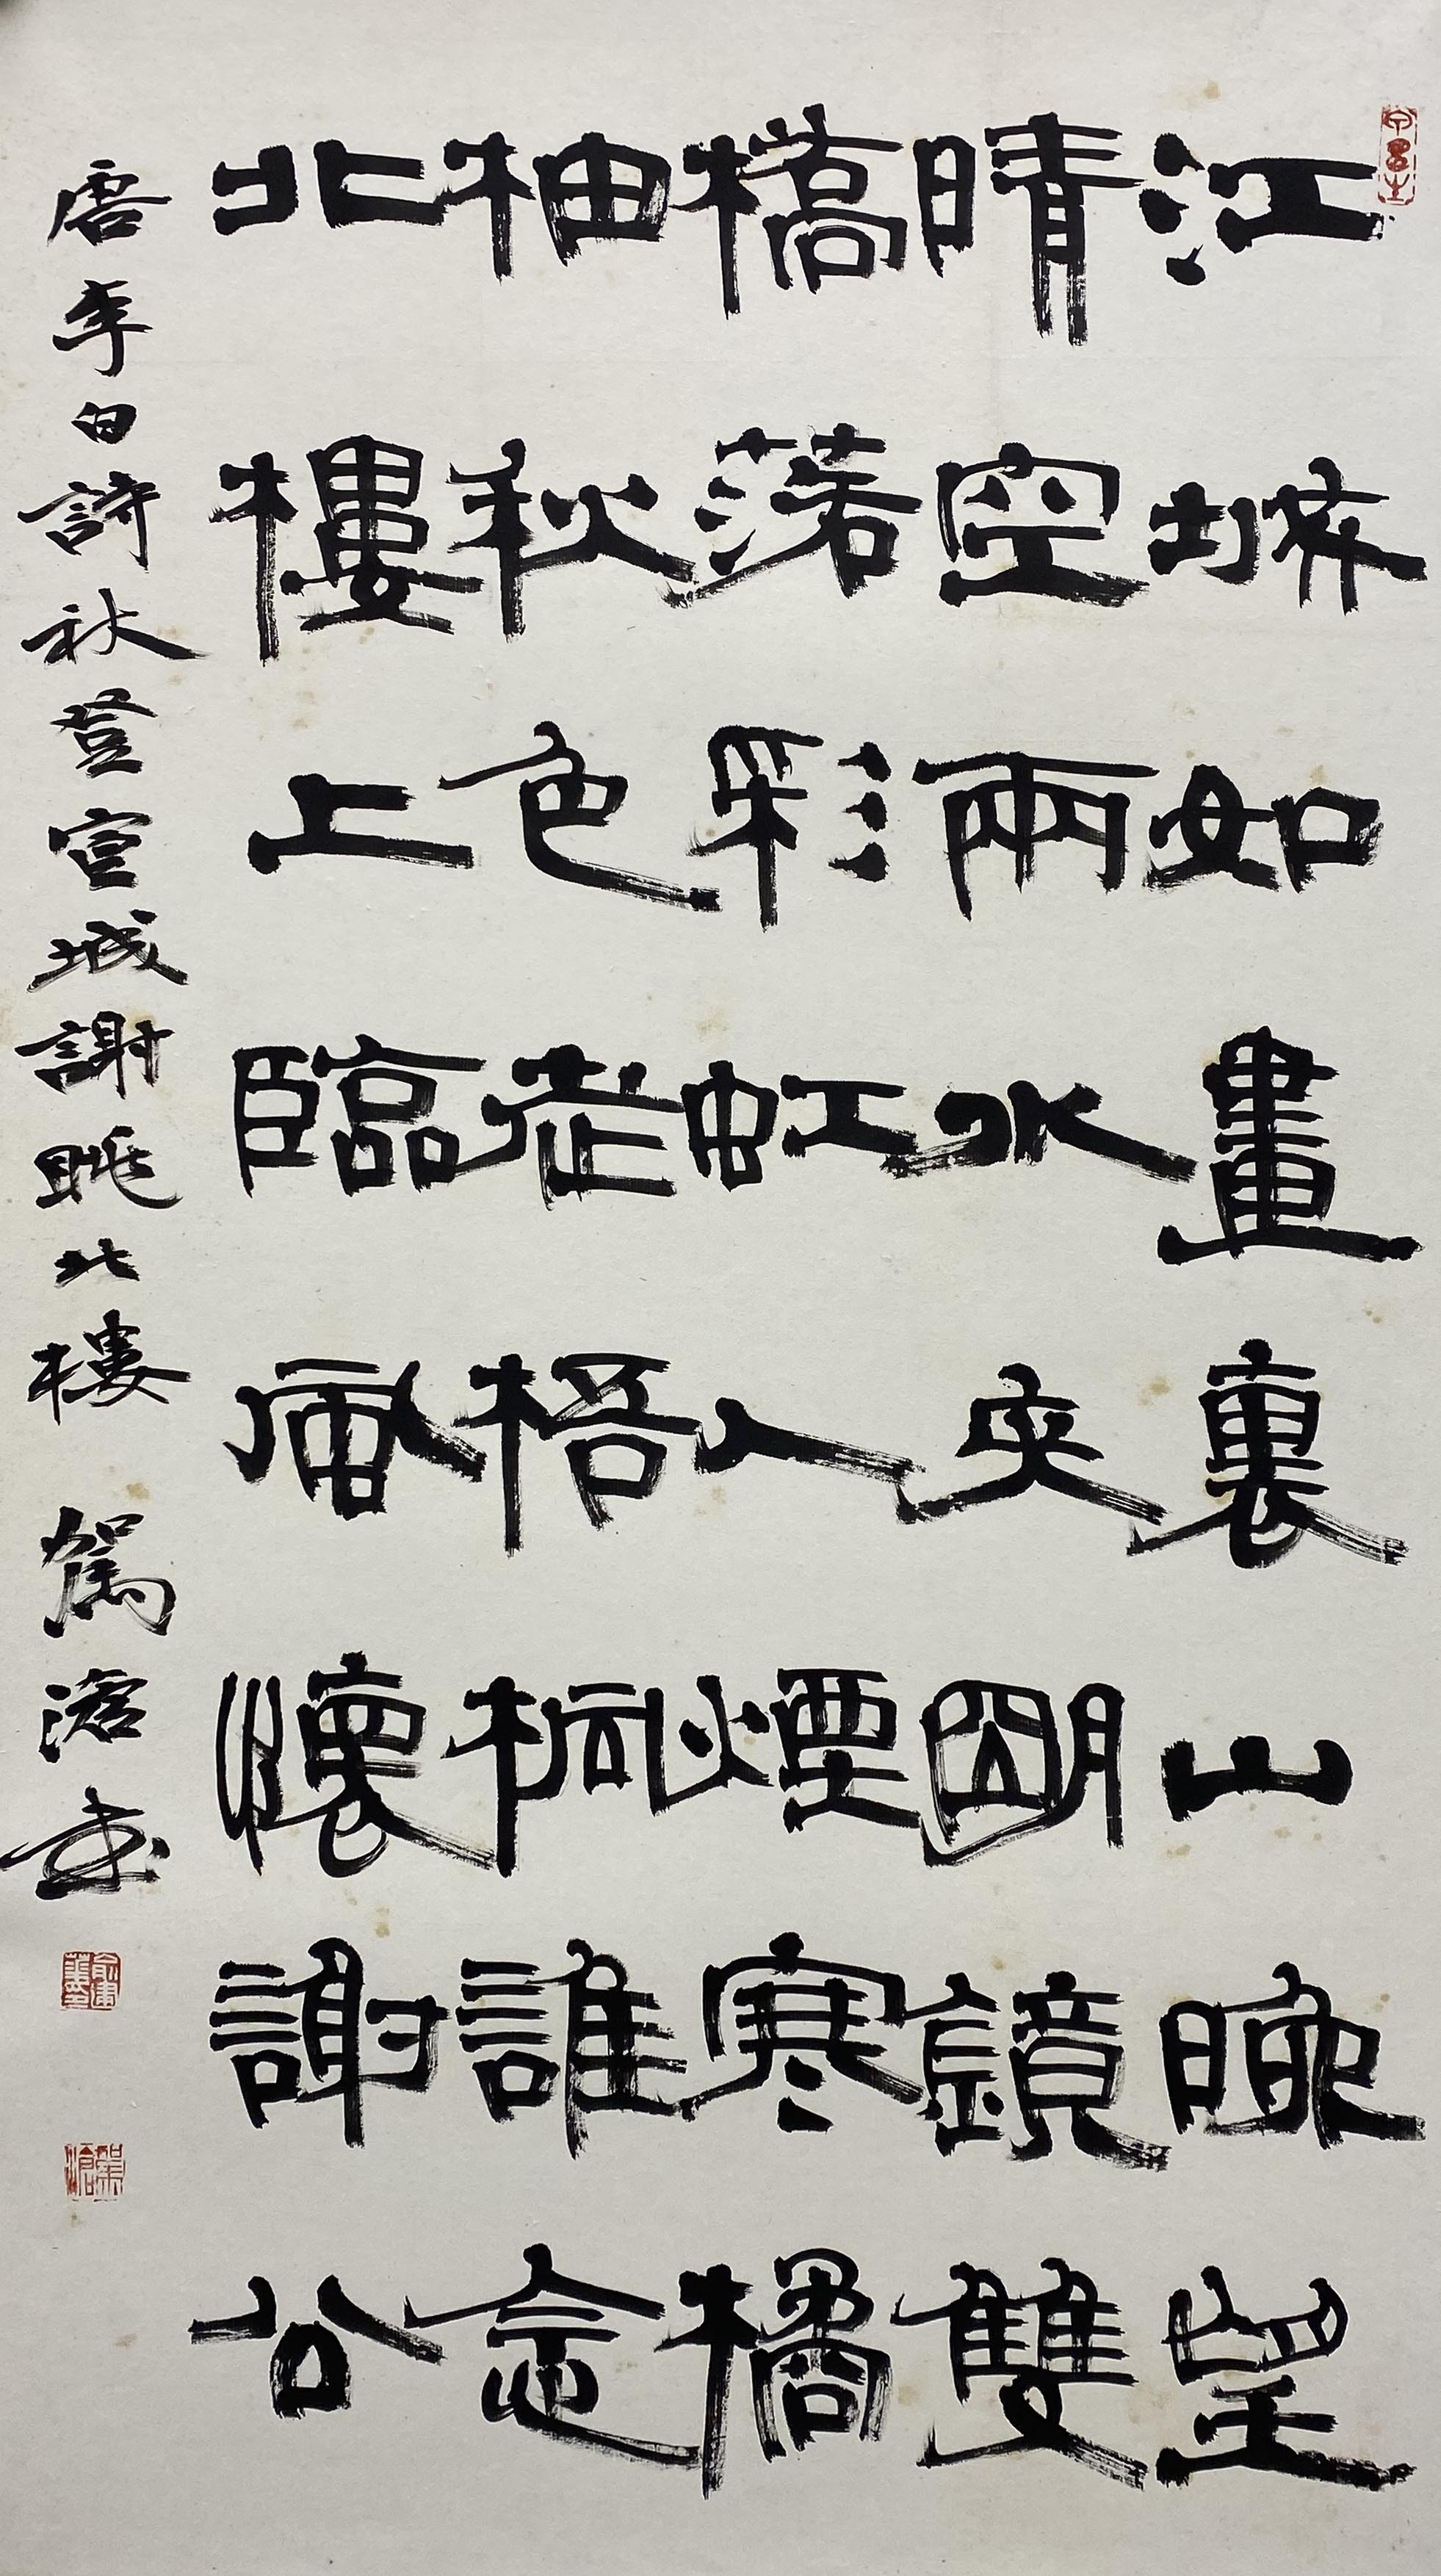 江城如畫裏山晚望
晴空兩水夾明鏡雙
橋落彩虹人煙寒橘
柚秋色老梧桐誰念
北樓上臨風懷謝公
唐李白詩秋登宣城謝眺北樓 駕滄書